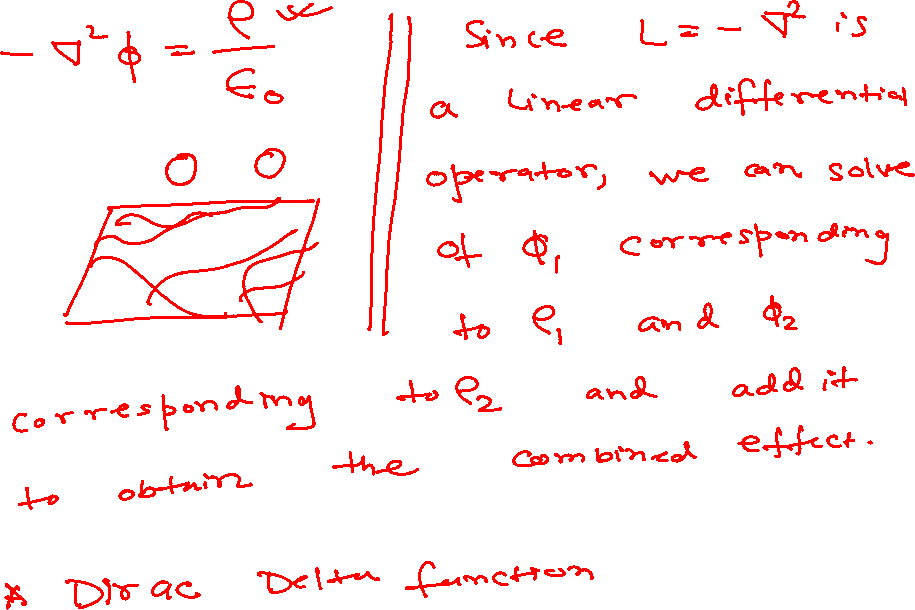 - ∇² ϕ = ρ / ε₀
Since L = - ∇² is
a Linear differential
operator, we can solve
of ϕ₁ corresponding
to ρ₁ and ϕ₂
corresponding to ρ₂ and add it
to obtain the combined effect.
* Dirac Delta function